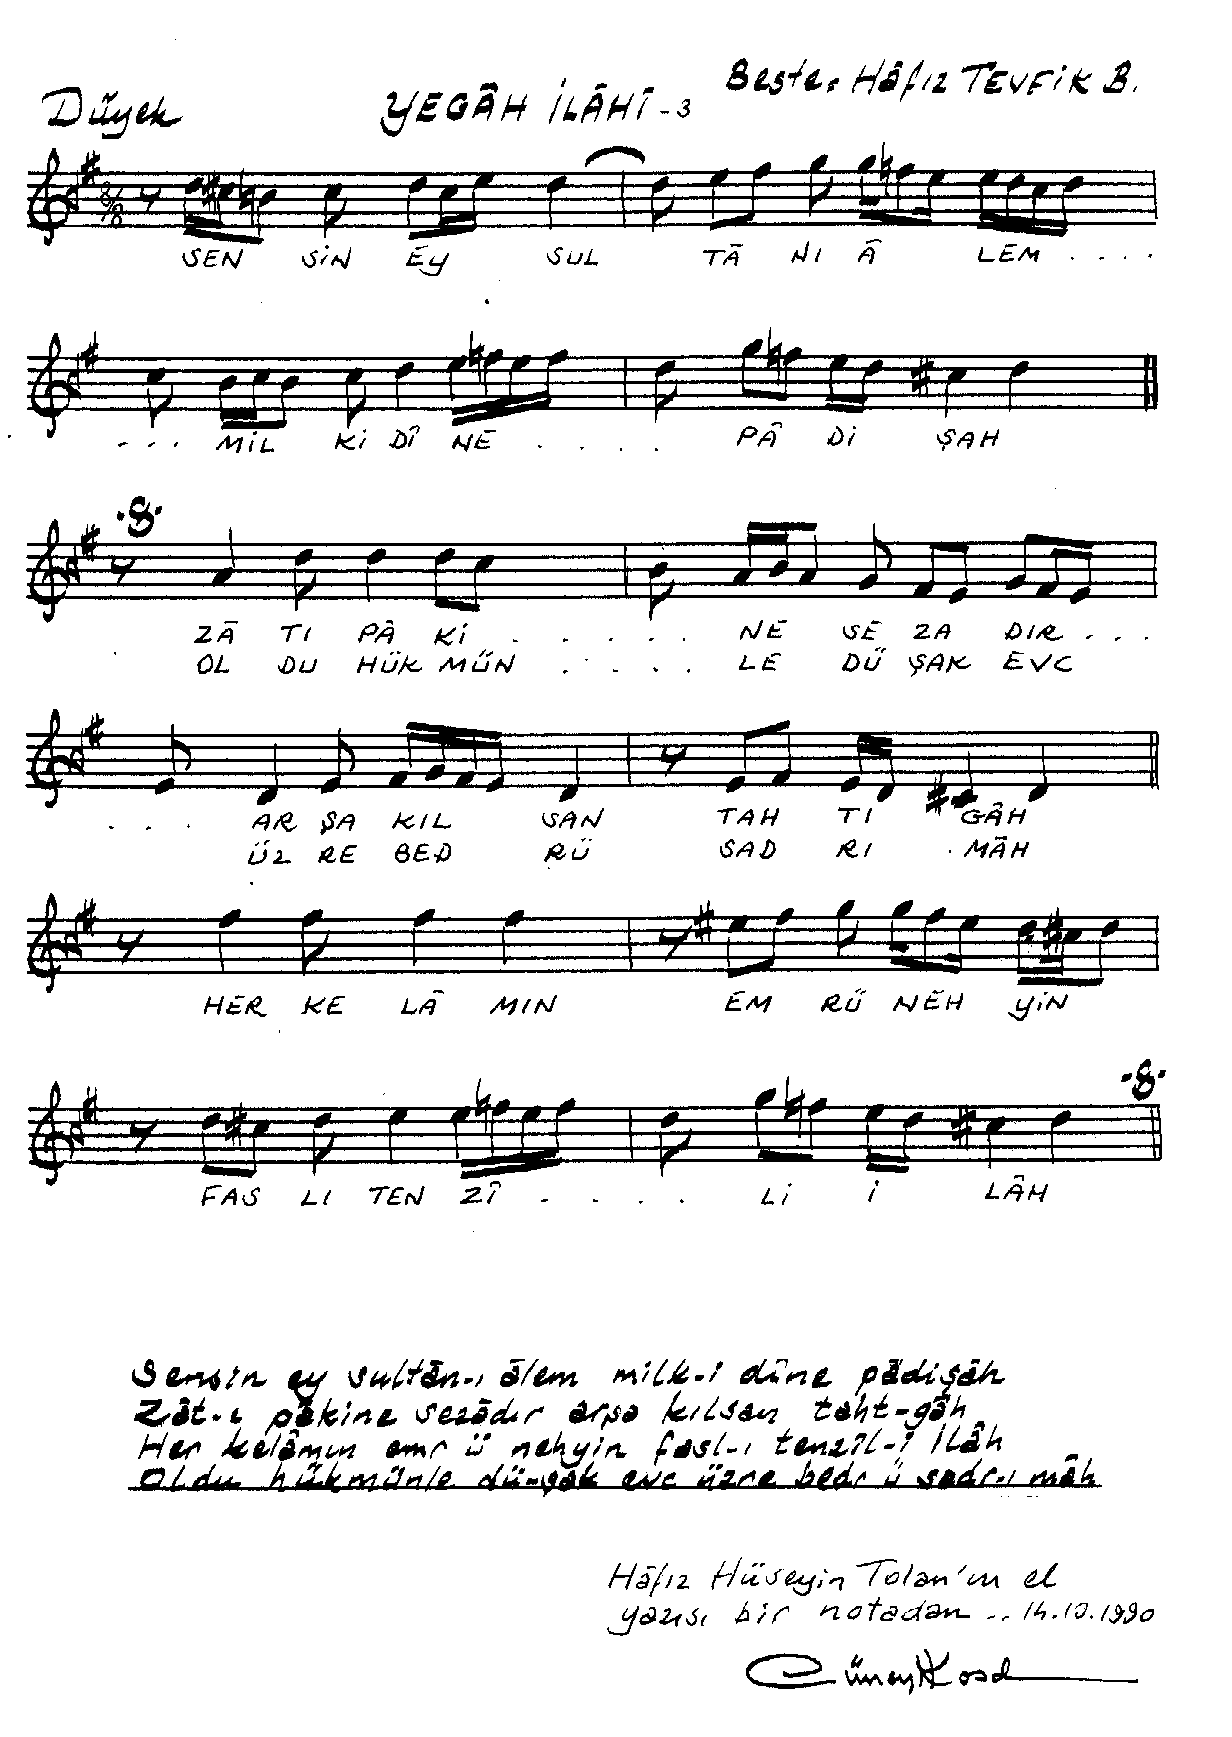 Düyek YEGÂH İLÂHÎ - 3 Beste: Hâfız TEVFİK B.
8/8
SEN SİN EY SUL TÂ NI Â LEM . . . .
. . . MİL Kİ DÎ NE . . . . PÂ Dİ ŞAH
ZÂ TI PÂ Kİ . . . . . NE SE ZA DIR . . .
OL DU HÜK MÜN . . . . LE DÜ ŞAK EVC
. . . AR ŞA KIL SAN TAH TI GÂH
ÜZ RE BED RÜ SAD RI MÂH
HER KE LÂ MIN EM RÜ NEH YİN
FAS LI TEN ZÎ . . . . Lİ İ LÂH
Sensin ey sultân-ı âlem milk-i dîne pâdişâh
Zât-ı pâkine sezâdır arşa kılsan taht-gâh
Her kelâmın emr ü nehyin fasl-ı tenzîl-i İlâh
Oldu hükmünle dü-şak evc üzre bedr ü sadr-ı mâh
Hâfız Hüseyin Tolan'ın el
yazısı bir notadan .. 14.10.1990